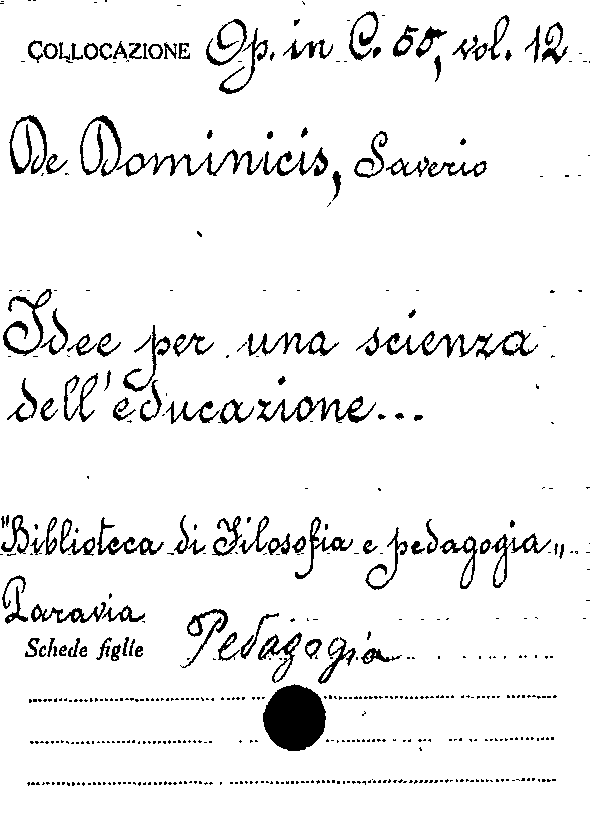 COLLOCAZIONE Op. in C. 55, vol. 12
De Dominicis, Saverio
Idee per una scienza
dell'educazione...
"Biblioteca di Filosofia e pedagogia„
Paravia
Schede figlie Pedagogia